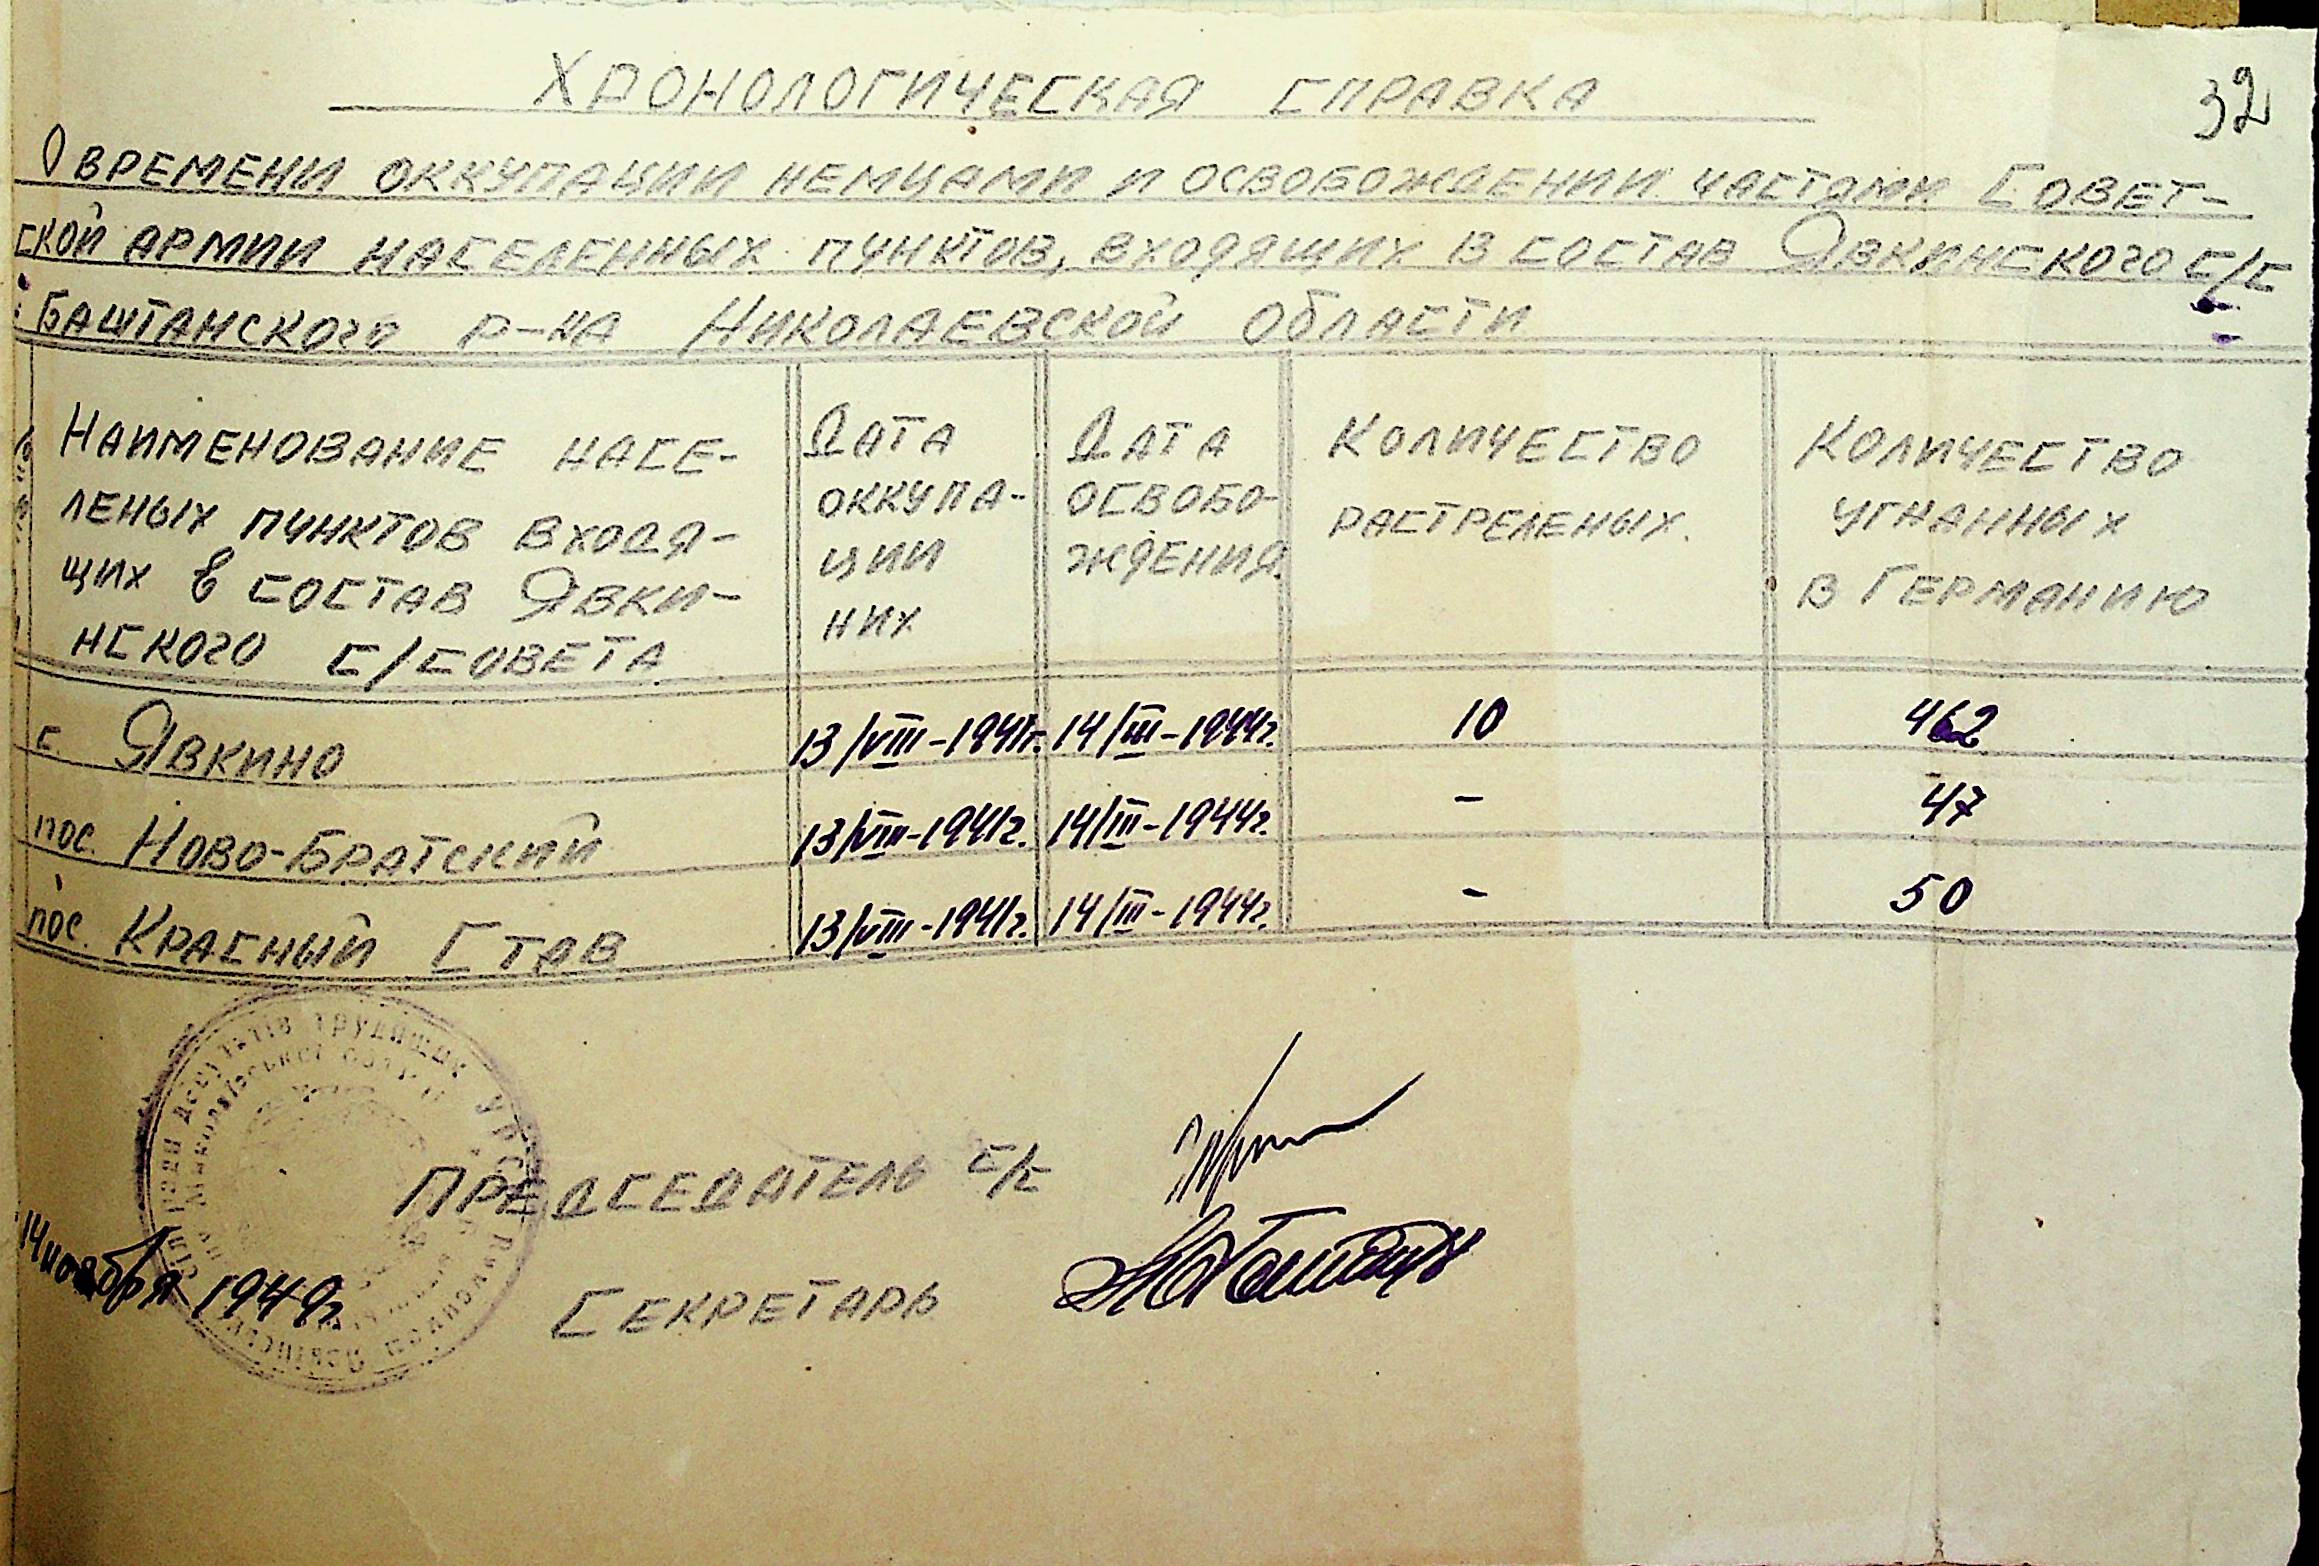 32
Хронологическая справка
О времени оккупации немцами и освобождении частями Совет-
ской армии населенных пунктов, входящих в состав Явкинского с/с
Баштанского р-на Николаевской области
Наименование насе-
леных пунктов входя-
щих в состав Явки-
нского с/совета
Дата
оккупа-
ции
них
Дата
освобо-
ждения.
Количество
растреленых.
Количество
угнанных
в Германию
с. Явкино 13/VIII-1941г. 14/III-1944г. 10 462
пос. Ново-Братский 13/VIII-1941г. 14/III-1944г. - 47
пос. Красный Став 13/VIII-1941г. 14/III-1944г. - 50
депутатів трудящих УРСР
Миколаївської області
Председатель с/с
14 ноября 1949г.
Секретарь